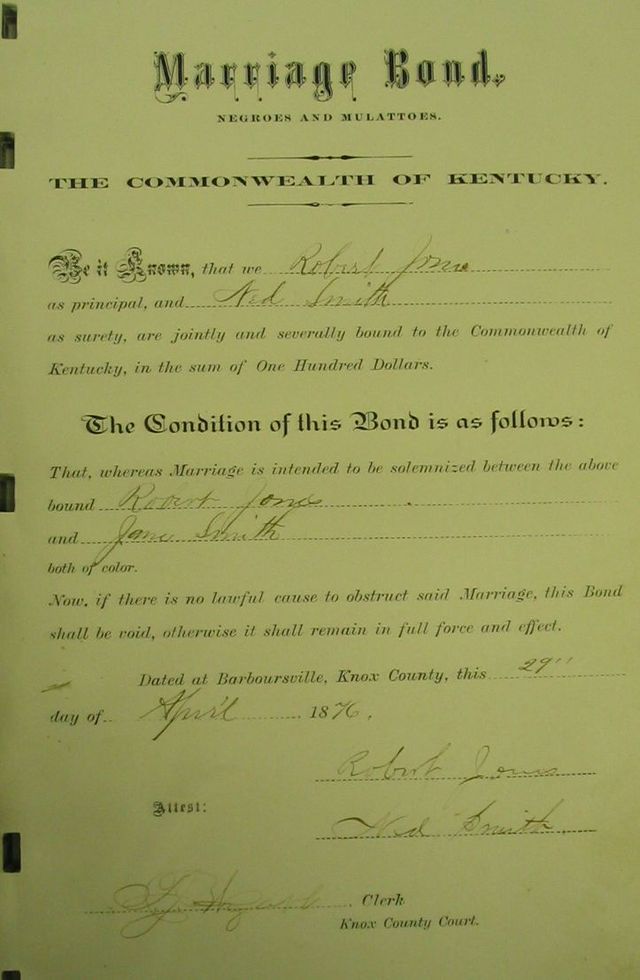 Marriage Bond.
NEGROES AND MULATTOES.
THE COMMONWEALTH OF KENTUCKY.
Be it Known, that we Robert Jones
as principal, and Ned Smith
as surety, are jointly and severally bound to the Commonwealth of
Kentucky, in the sum of One Hundred Dollars.
The Condition of this Bond is as follows:
That, whereas Marriage is intended to be solemnized between the above
bound Robert Jones
and Jane Smith
both of color.
Now, if there is no lawful cause to obstruct said Marriage, this Bond
shall be void, otherwise it shall remain in full force and effect.
Dated at Barboursville, Knox County, this 29"
day of April 1876.
Robert Jones
Attest:
Ned Smith
Clerk
Knox County Court.